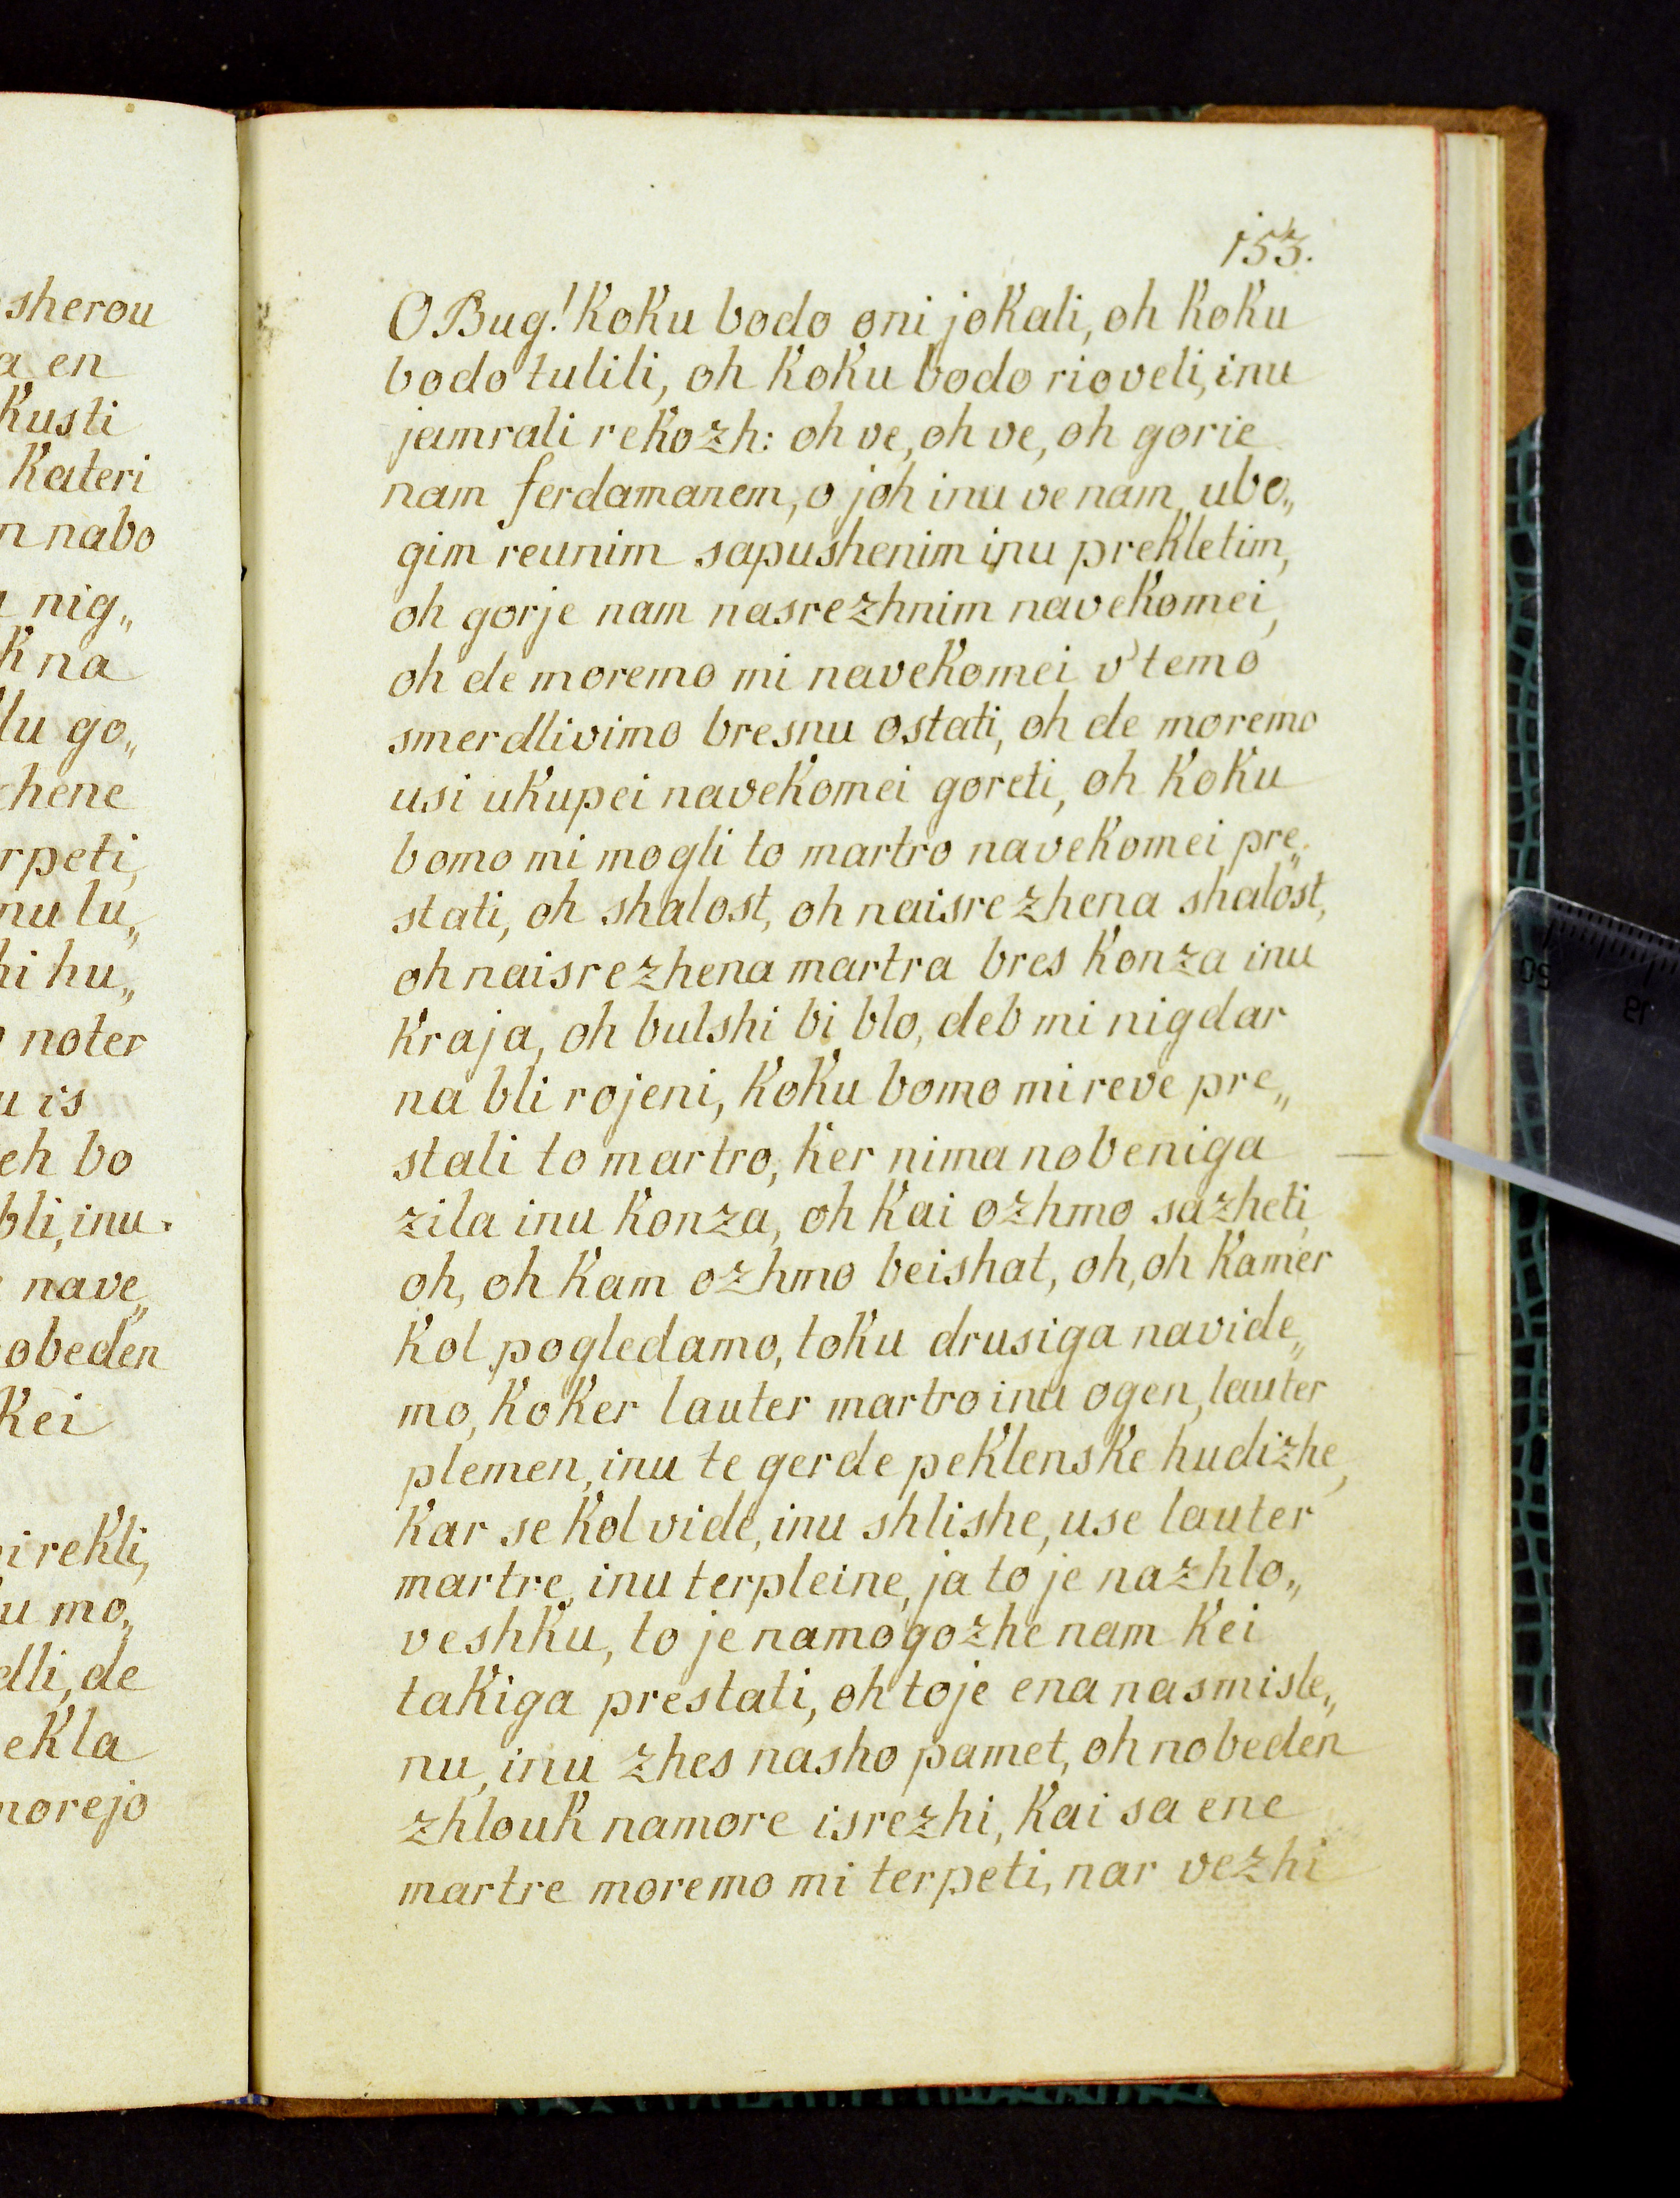 sherou
a en
kusti
kateri
n nabo
nig„
k na
lu go„
chene
rpeti,
nu lu„
hi hu„
noter
u is
eh bo
bli, inu
nave„
obeden
kei
i rekli,
u mo„
dli, de
ekla
morejo
153.
O Bug! koku bodo oni jokali, oh koku
bodo tulili, oh koku bodo rioveli, inu
jamrali rekozh: oh ve, oh ve, oh gorie
nam ferdamanem, o joh inu ve nam, ubo„
gim reunim sapushenim inu prekletim,
oh gorje nam nasrezhnim navekomei,
oh de moremo mi navekomei v' temo
smerdlivimo bresnu ostati, oh de moremo
usi ukupei navekomei goreti, oh koku
bomo mi mogli to martro navekomei pre„
stati, oh shalost, oh naisrezhena shalost,
oh naisrezhena martra bres konza inu
kraja, oh bulshi bi blo, deb mi nigdar
na bli rojeni, koku bomo mi reve pre„
stali to martro, ker nima nobeniga
zila inu konza, oh kai ozhmo sazheti,
oh, oh kam ozhmo beishat, oh, oh kamer
kol pogledamo, toku drusiga navide„
mo, koker lauter martro inu ogen, lauter
plemen, inu te gerde peklenske hudizhe,
kar se kol vide, inu shlishe, use lauter
martre, inu terpleine, ja to je nazhlo„
veshku, to je namogozhe nam kei
takiga prestati, oh to je ena nasmisle„
nu, inu zhes nasho pamet, oh nobeden
zhlouk namore isrezhi, kai sa ene
martre moremo mi terpeti, nar vezhi